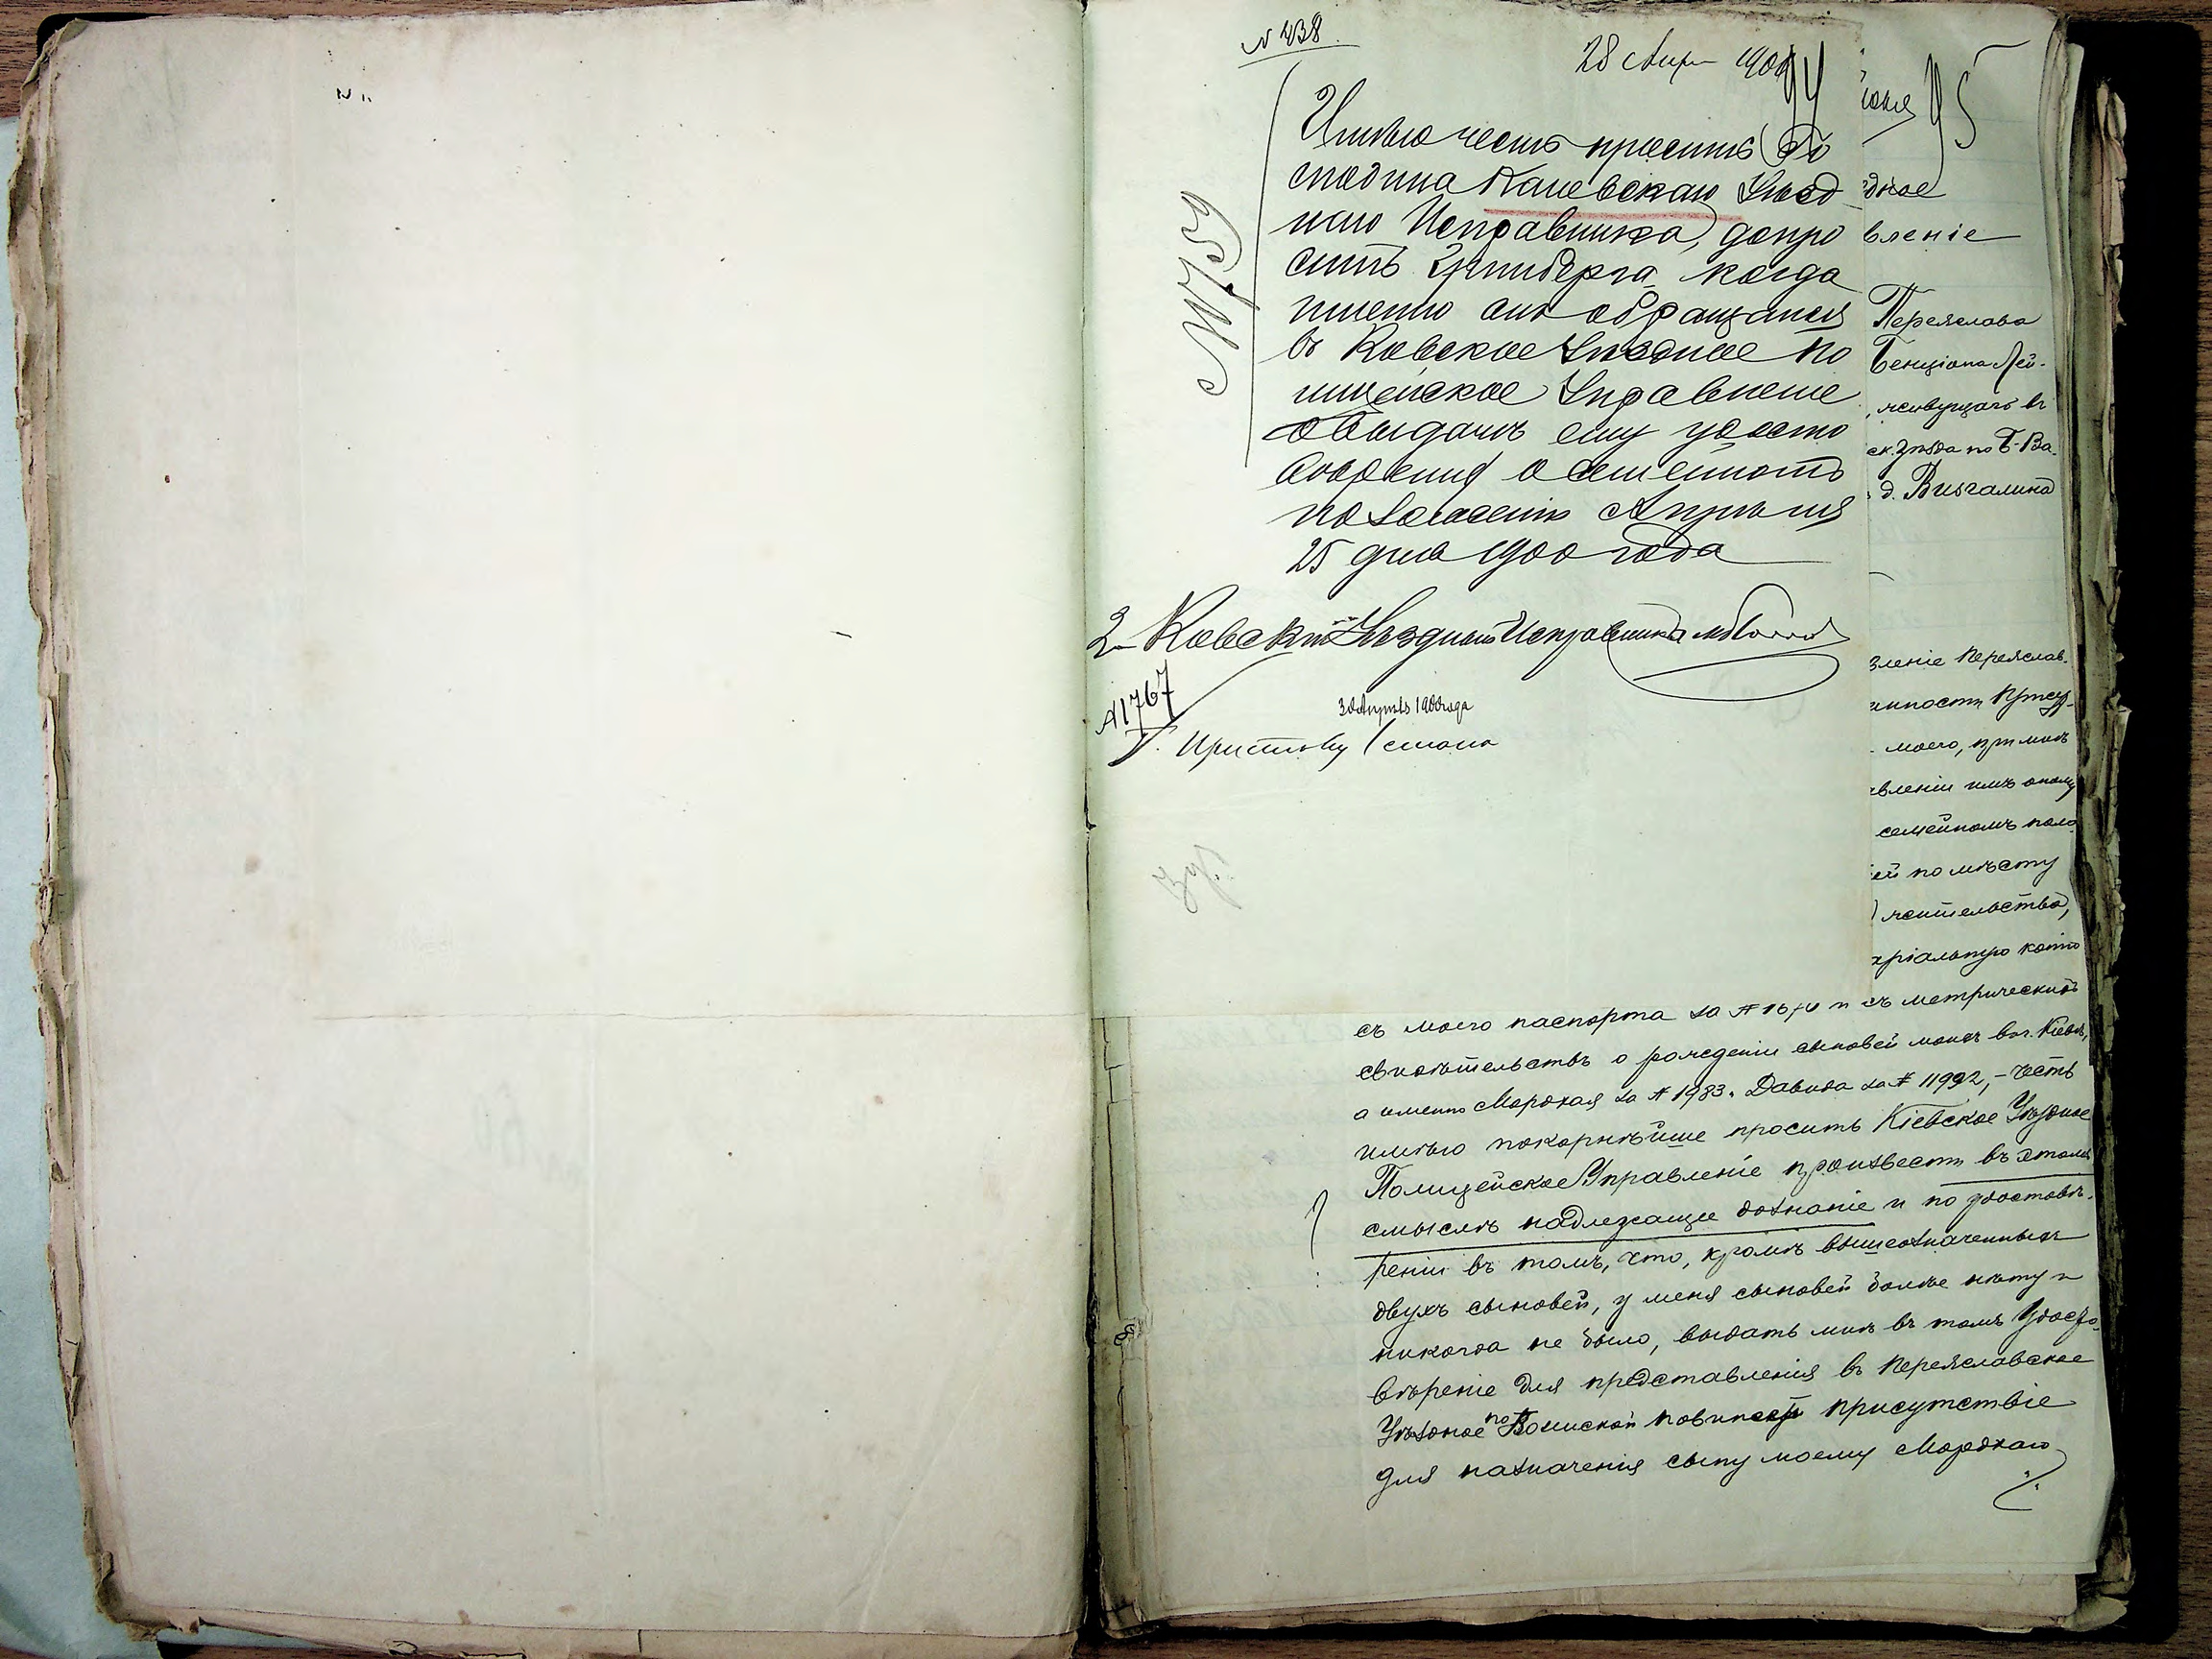 N 438.
28 Апр 1900
94
Имѣю честь просить Го
сподина Каневскаго Уѣзд
наго Исправника, допро
сить Гринберга, когда
именно онъ обращался
въ Киевское Уѣздное По
лицейское Управленіе
о выдачѣ ему удосто
вѣренія о семейномъ
положеніи Апрѣля
25 дня 1900 года
Исправникъ
А1767
30 Апрѣля 1900 года
Г. Приставу 1 стана
95
дное
вленіе
Переяслава
Бенціона Лей-
живущаго въ
ск. уѣзда по Б-Ва
д.
вленіе Переяслав.
инности Присут
моего, при мнѣ
авленіи имъ оному
семейномъ поло
ей по мѣсту
жительства,
аріальную копію
съ моего паспорта за № и съ метрическихъ
свидѣтельствъ о рожденіи сыновей моихъ въ г. Кіевѣ,
а именно Мордхая за № 1983 и Давида за № 11992, – честь
имѣю покорнѣйше просить Кіевское Уѣздное
Полицейское Управленіе произвести въ этомъ
смыслѣ надлежащее дознаніе и по удостовѣ-
реніи въ томъ, что, кромѣ вышеозначенныхъ
двухъ сыновей, у меня сыновей болѣе нѣту и
никогда не было, выдать мнѣ въ томъ Удосто-
вѣреніе для представленія въ Переяславское
Уѣздное по Воинской повинности присутствіе
для назначенія сыну моему Мордхаю